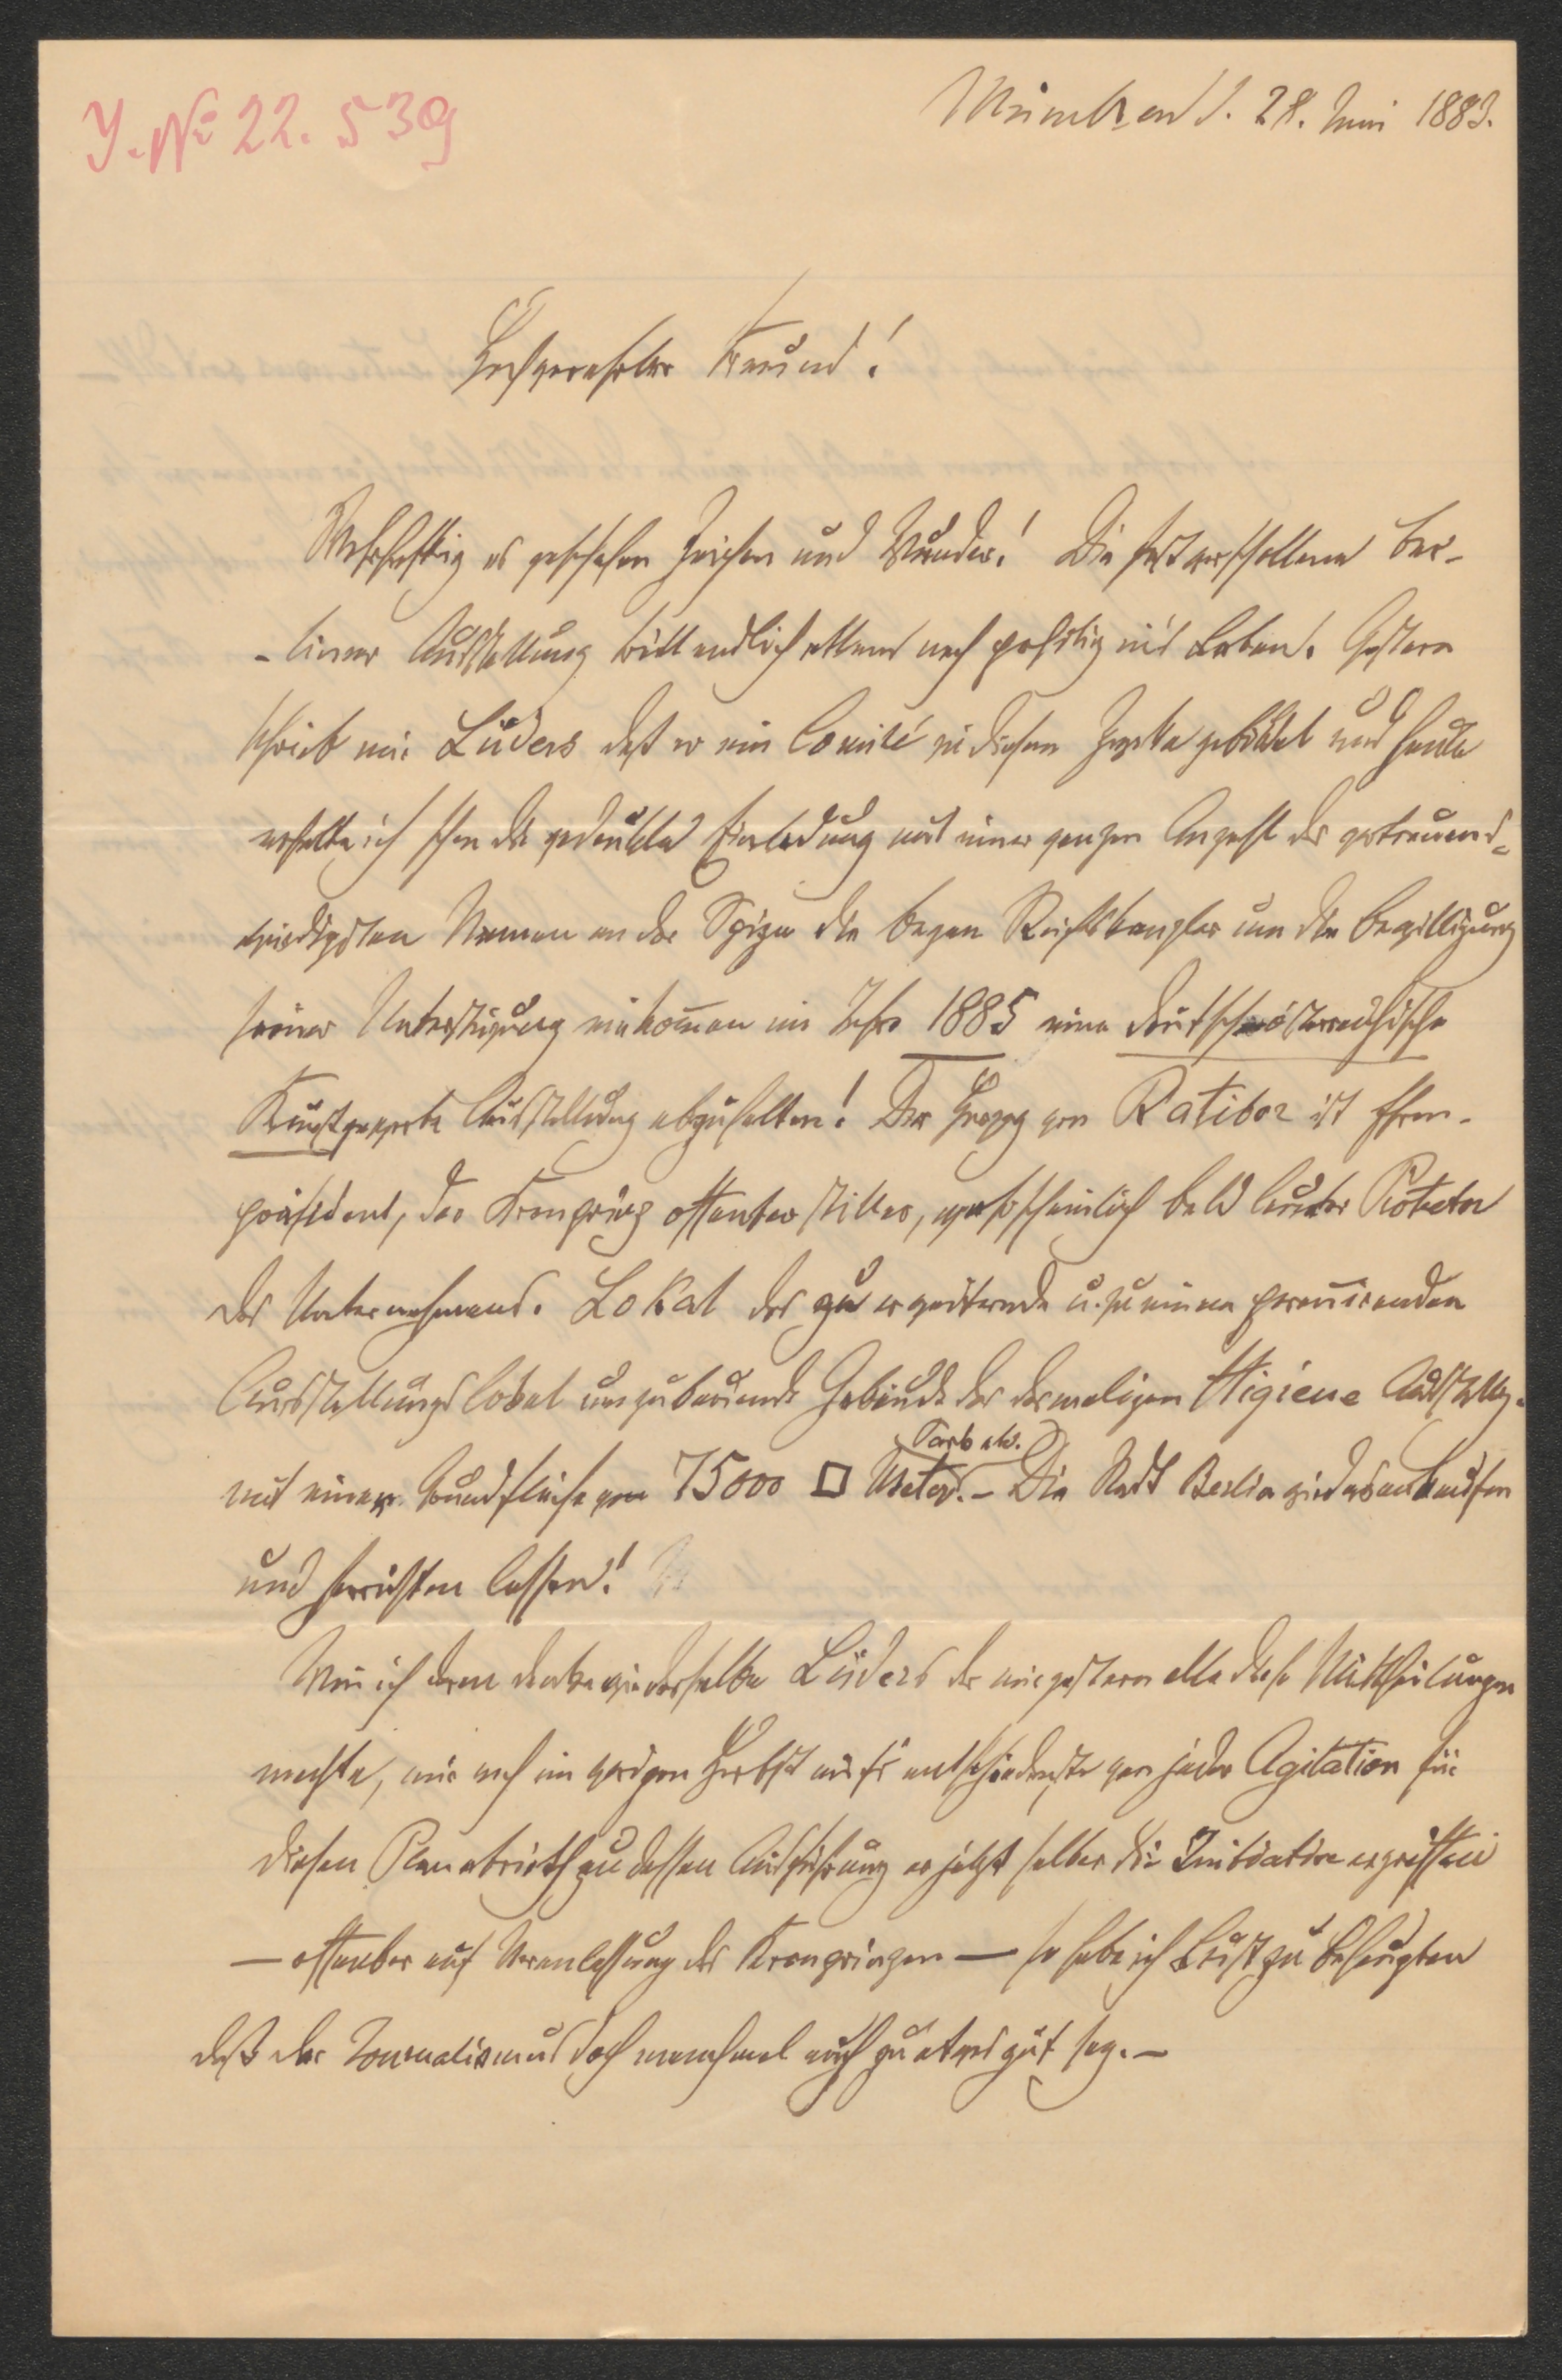 J. № 22.539
München d. 28. Juni 1883.
Hochverehrter Freund!
Wahrhaftig es geschehen Zeichen und Wunder! Die fast verschollene Ber-
-liner Ausstellung tritt endlich allem nach ins Leben. Gestern
schrieb mir Lüders daß er ein Comité zu diesem Zwecke gebildet und heute
erhalte ich schon die gedruckte Einladung mit einer ganzen Anzahl der vertrauens-
würdigsten Namen an der Spize die beym Reichskanzler um die Bewilligung
seiner Unterstüzung einkommen im Jahre 1885 eine deutsch österreichische
Kunstgewerbe Ausstellung abzuhalten! Der Herzog von Ratibor ist Ehren-
präsident, der Kronprinz offenbar stiller, wahrscheinlich bald lauter Protector
des Unternehmens. Lokal das zu erweiternde u. zu einem perennirenden
Ausstellungslokal umzubauende Gebäude der dermaligen Higiene Ausstellg.
mit einer Grundfläche von 75000 □ Meter. – Die Stadt Berlin wird es ankaufen
Park etc.
und herrichten lassen!
Wenn ich daran denke wie derselbe Lüders der mir gestern alle diese Mittheilungen
machte, mir noch im vorigen Herbst aufs entschiedenste von jeder Agitation für
diesen Plan abrieth zu dessen Ausführung er jetzt selber die Initiative ergriffen
— offenbar auf Veranlassung des Kronprinzen — so habe ich Lust zu behaupten
daß der Journalismus doch manchmal auch zu etwas gut sey. –